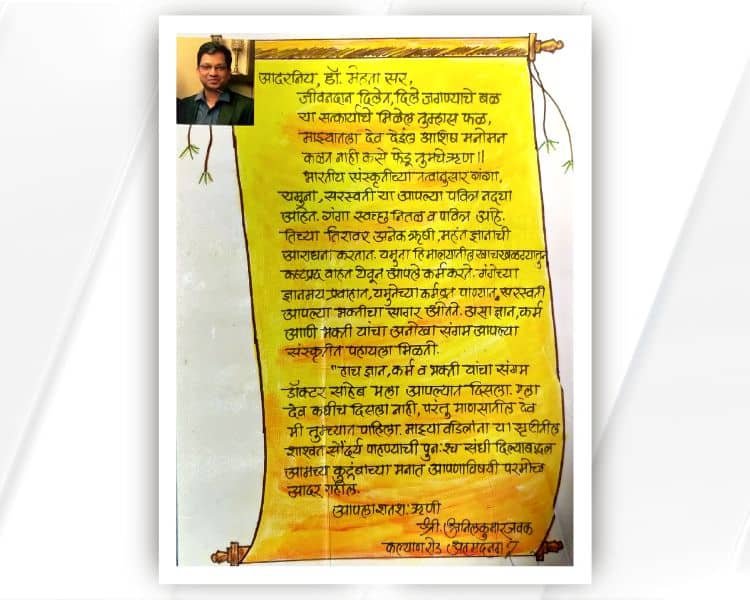 आदरनिय, डॉ. मेहता सर,
जीवनदान दिलेत, दिले जगण्याचे बळ
या सत्कार्याचे मिळेल तुम्हास फळ,
माझ्यातला देव देईल आशिष मनोमन
कळत नाही कसे फेडू तुमचे ऋण॥
भारतीय संस्कृतीच्या तत्वानुसार गंगा,
यमुना, सरस्वती या आपल्या पवित्र नद्या
आहेत. गंगा स्वच्छ नितळ व पवित्र आहे.
तिच्या तिरावर अनेक ऋषी, महंत ज्ञानाची
आराधना करतात. यमुना हिमालयातील खाचखळग्यातुन
कष्टप्रद वाहत येवून आपले कर्म करते. गंगेच्या
ज्ञानमय प्रवाहात, यमुनेच्या कर्मव्रत पाण्यात, सरस्वती
आपल्या भक्तीचा सागर ओतते. असा ज्ञान, कर्म
आणि भक्ती यांचा अनोखा संगम आपल्या
संस्कृतीत पहायला मिळतो.
"हाच ज्ञान, कर्म व भक्ती यांचा संगम
डॉक्टर साहेब मला आपल्यात दिसला. मला
देव कधीच दिसला नाही, परंतु माणसातील देव
मी तुमच्यात पाहिला. माझ्या वडिलांना या सृष्टीतील
शाश्वत सौंदर्य पाहण्याची पुनःश्च संधी दिल्याबद्धल
आमच्या कुटुंबाच्या मनात आपणाविषयी परमोच्च
आदर राहील.
आपला शतशः ऋणी
श्री. अनिलकुमार जवक
कल्याण रोड